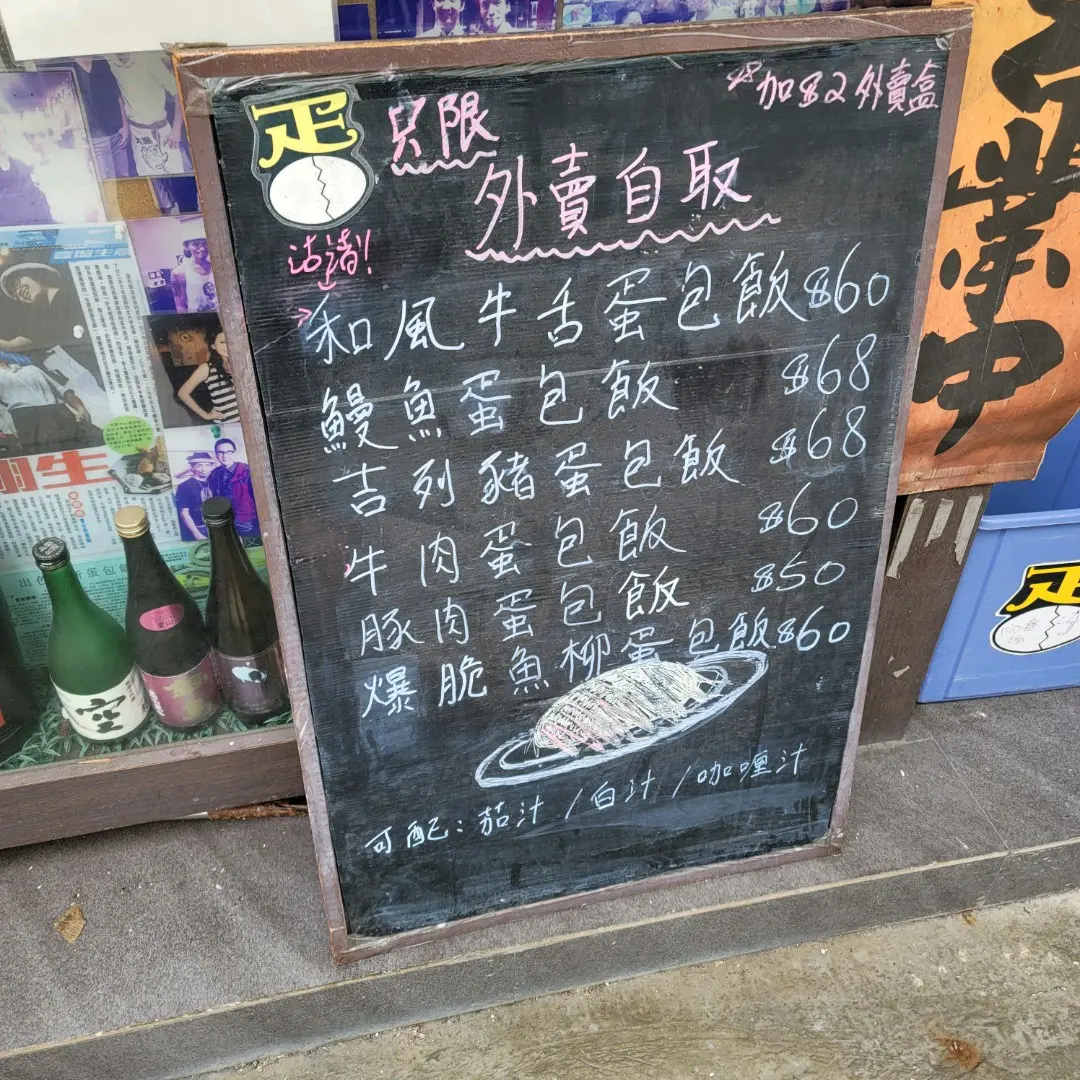 *加$2外賣盒
只限
外賣自取
沽清!
和風牛舌蛋包飯$60
鰻魚蛋包飯 $68
吉列豬蛋包飯 $68
牛肉蛋包飯 $60
豚肉蛋包飯 $50
爆脆魚柳蛋包飯$60
可配:茄汁/白汁/咖喱汁
業中
空